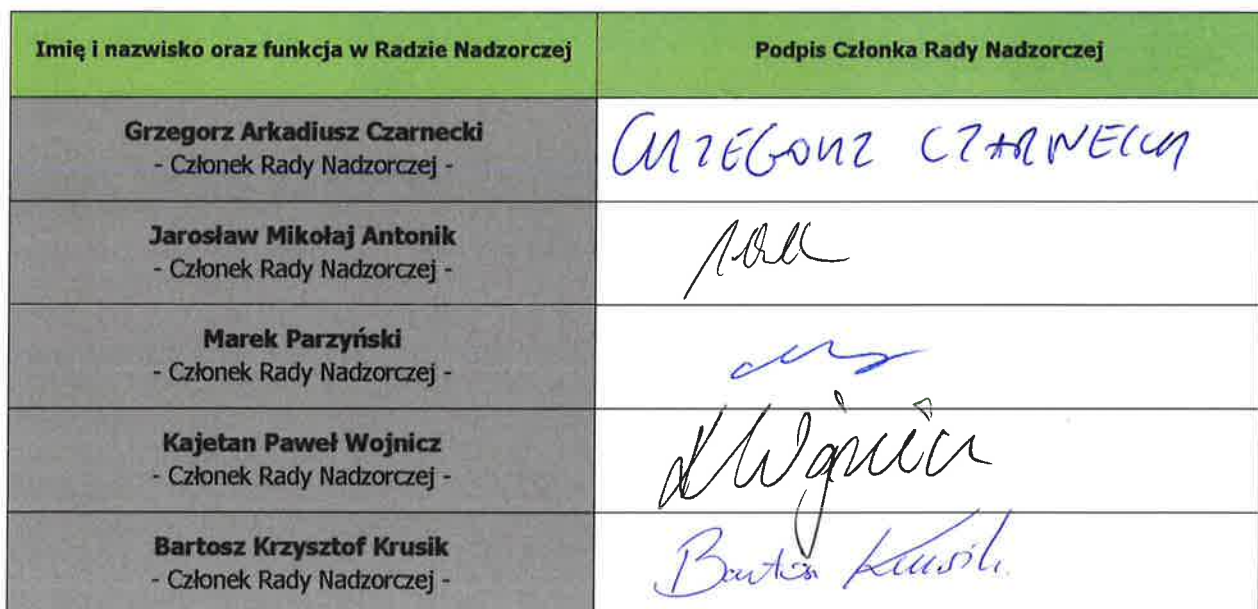 Imię i nazwisko oraz funkcja w Radzie Nadzorczej
Podpis Członka Rady Nadzorczej
Grzegorz Arkadiusz Czarnecki
- Członek Rady Nadzorczej -
GRZEGORZ CZARNECKI
Jarosław Mikołaj Antonik
- Członek Rady Nadzorczej -
Marek Parzyński
- Członek Rady Nadzorczej -
Kajetan Paweł Wojnicz
- Członek Rady Nadzorczej -
K Wojnicz
Bartosz Krzysztof Krusik
- Członek Rady Nadzorczej -
Bartosz Krusik